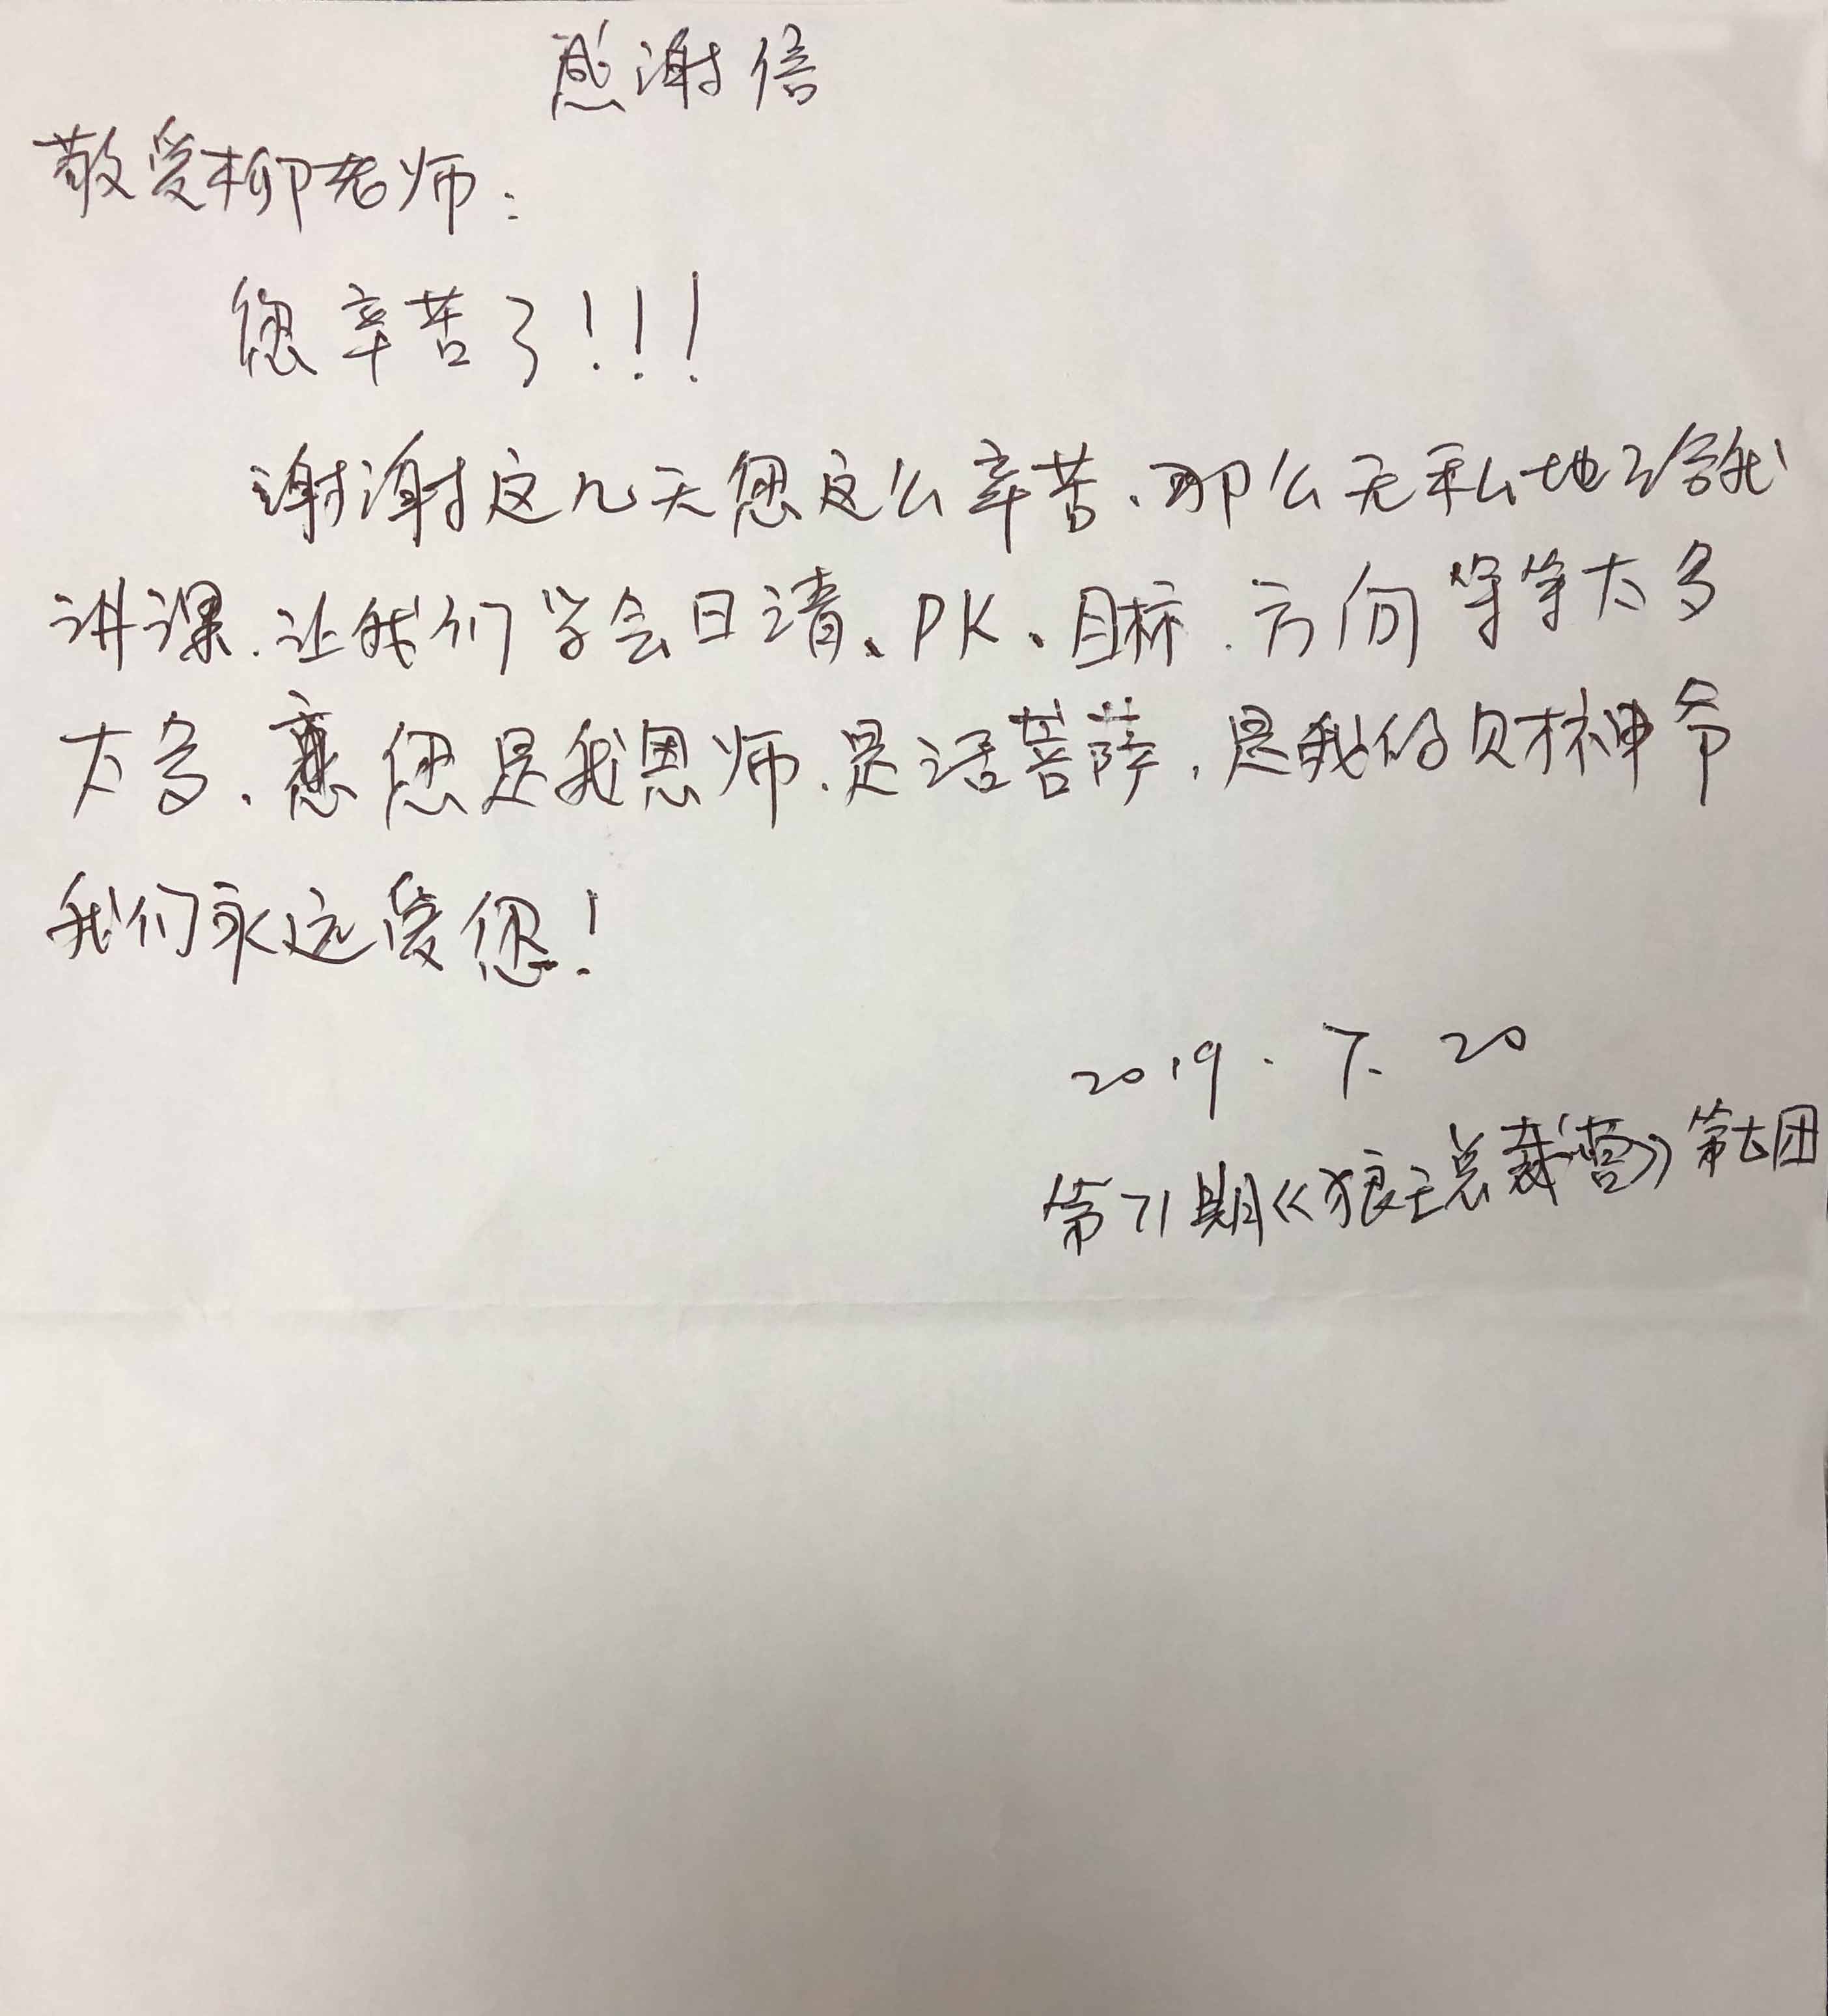 感谢信
敬爱柳老师：
您辛苦了！！！
谢谢这几天您这么辛苦、那么无私地给我
讲课.让我们学会日清、PK、目标.方向等等太多
太多.您是我恩师.是活菩萨，是我的财神爷
我们永远爱您！
2019.7.20
第71期《狼王总裁营》第七团